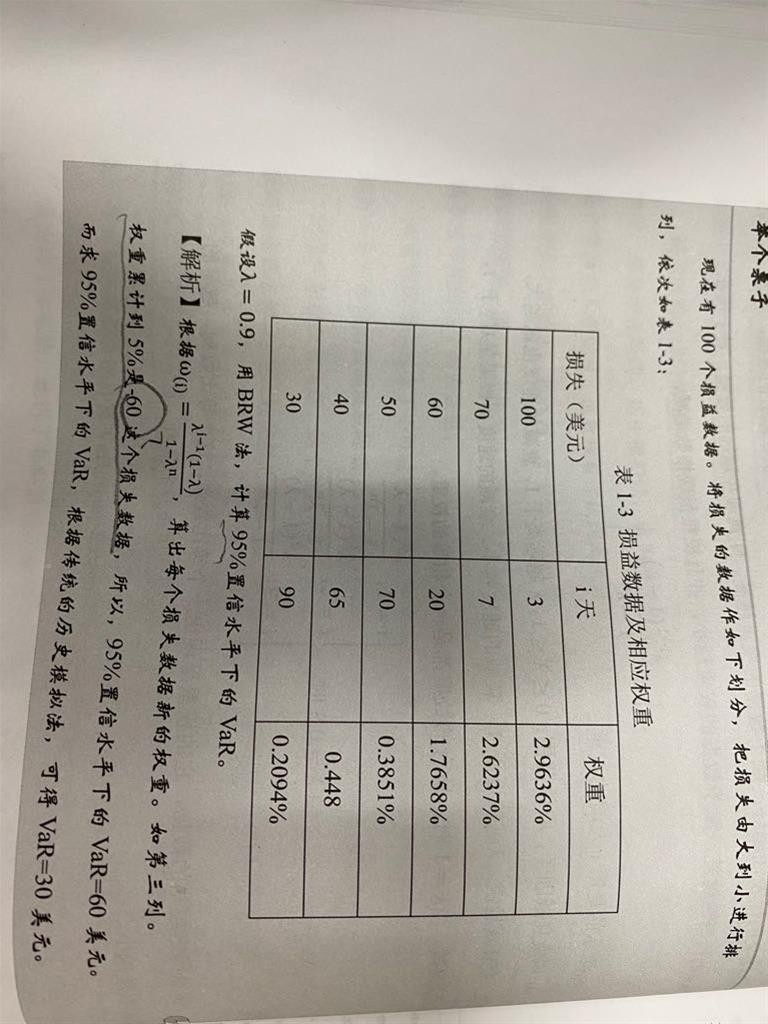 举个栗子
现在有 100 个损益数据。将损失的数据作如下划分，把损失由大到小进行排
列，依次如表 1-3：
表 1-3 损益数据及相应权重
损失（美元） i 天 权重
100 3 2.9636%
70 7 2.6237%
60 20 1.7658%
50 70 0.3851%
40 65 0.448
30 90 0.2094%
假设λ = 0.9，用 BRW 法，计算 95%置信水平下的 VaR。
【解析】根据ω(i) = λ^(i−1)(1−λ) / (1−λ^n)，算出每个损失数据新的权重。如第三列。
权重累计到 5%是-60 这个损失数据，所以，95%置信水平下的 VaR=60 美元。
而求 95%置信水平下的 VaR，根据传统的历史模拟法，可得 VaR=30 美元。